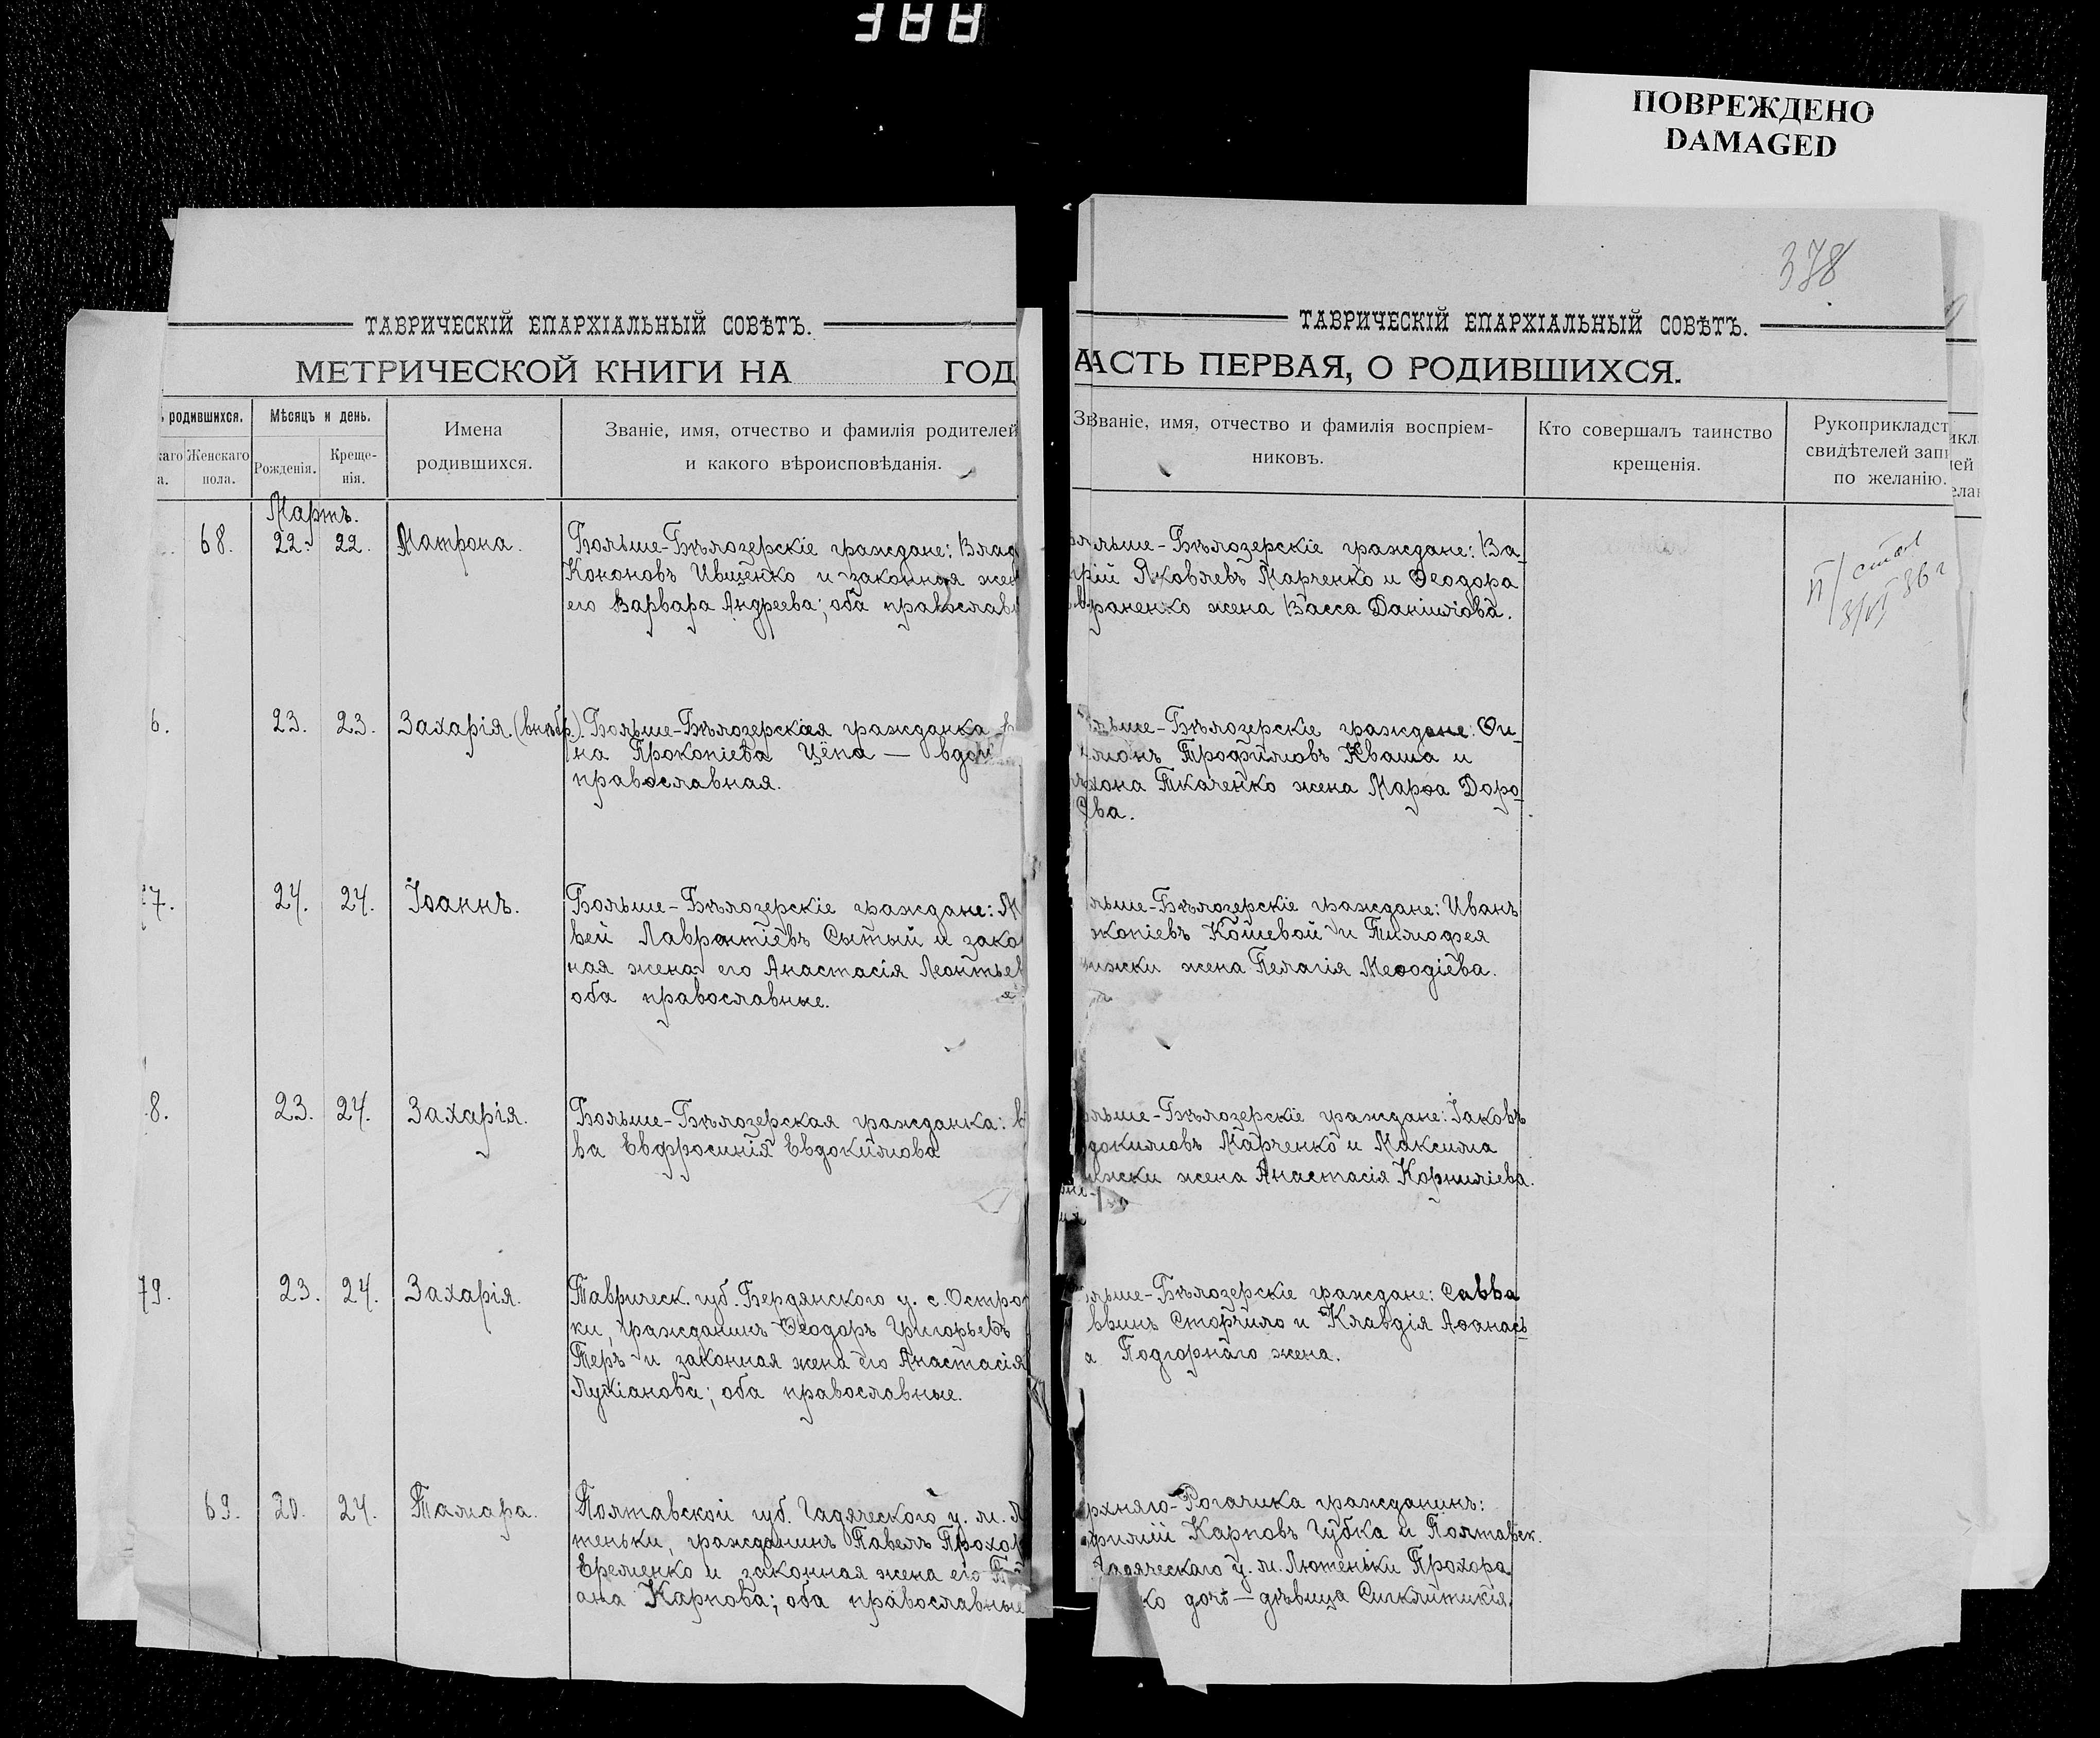 ПОВРЕЖДЕНО
DAMAGED
378
ТАВРИЧЕСКІЙ ЕПАРХІАЛЬНЫЙ СОВѢТЪ.
МЕТРИЧЕСКОЙ КНИГИ НА ГОД
родившихся.
Мѣсяцъ и день.
Имена
родившихся.
Званіе, имя, отчество и фамилія родителей
и какого вѣроисповѣданія.
каго
а.
Женскаго
пола.
Рожденія.
Креще-
нія.
Мартъ.
68. 22. 22. Матрона.
Больше-Бѣлозерскіе граждане: Влад
Кононовъ Иващенко и законная жен
его Варвара Андреева; оба православн
6. 23. 23. Захарія (внѣбр.).
Больше-Бѣлозерская гражданка
на Прокопіева Цёпа — вдов
православная.
7. 24. 24. Іоаннъ.
Больше-Бѣлозерскіе граждане: М
вей Лаврентіевъ Сытый и закон
ная жена его Анастасія Леонтьев
оба православные.
8. 23. 24. Захарія.
Больше-Бѣлозерская гражданка:
ва Евфросинія Евдокимова
79. 23. 24. Захарія.
Таврическ. губ. Бердянского у. с. Остро
ки, гражданинъ Ѳеодоръ Григорьевъ
Теръ и законная жена его Анастасія
Лукіанова; оба православные.
69. 20. 24. Тамара.
Полтавской губ. Гадяческого у. м. Л
теньки, гражданинъ Павелъ Прохор
Еременко и законная жена его
ана Карпова; оба православные
ТАВРИЧЕСКІЙ ЕПАРХІАЛЬНЫЙ СОВѢТЪ.
АСТЬ ПЕРВАЯ, О РОДИВШИХСЯ.
Званіе, имя, отчество и фамилія воспріем-
никовъ.
Кто совершалъ таинство
крещенія.
Рукоприкладст
свидѣтелей запи
по желанію.
льше-Бѣлозерскіе граждане: Ва-
рій Яковлевъ Марченко и Ѳеодора
враненко жена Васса Даніилова.
льше-Бѣлозерскіе граждане: Фи-
имонъ Трофимовъ Кваша и
хона Ткаченко жена Марѳа Доро-
ева.
льше-Бѣлозерскіе граждане: Иванъ
окопіевъ Кошевой и Тимоѳея
ижки жена Пелагія Меѳодіева.
льше-Бѣлозерскіе граждане: Іаковъ
докимовъ Марченко и Максима
ижки жена Анастасія Корниліева.
льше-Бѣлозерскіе граждане: Савва
ввинъ Сторчило и Клавдія Аѳанась
а Подгорнаго жена.
рхняго-Рогачика гражданинъ:
фимій Карповъ Губка и Полтавск.
Гадяческаго у. м. Лютеньки Прохора
ко дочь — дѣвица Сигклитикія.